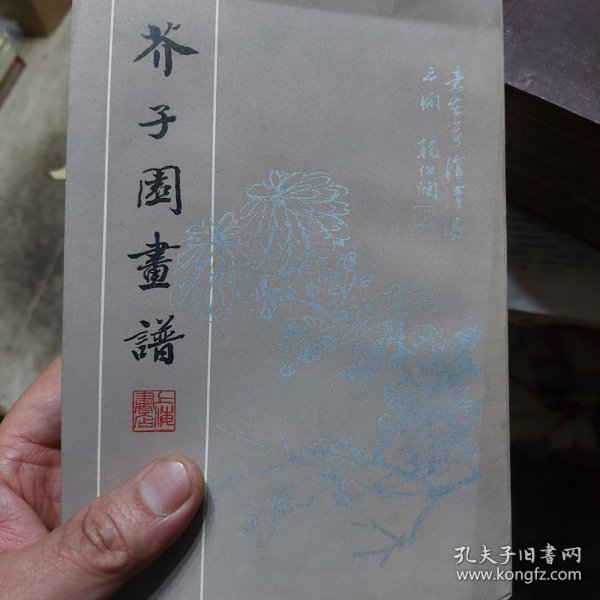 芥子園畫譜
上海
書店
云洞 楊伯潤
孔夫子旧书网
www.kongfz.com